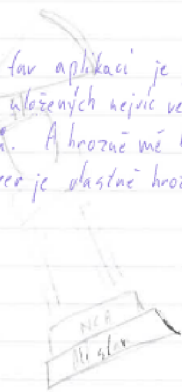 fav aplikací je
uložených nejvíc ve
A hrozně mě
je vlastně hroz
NCA